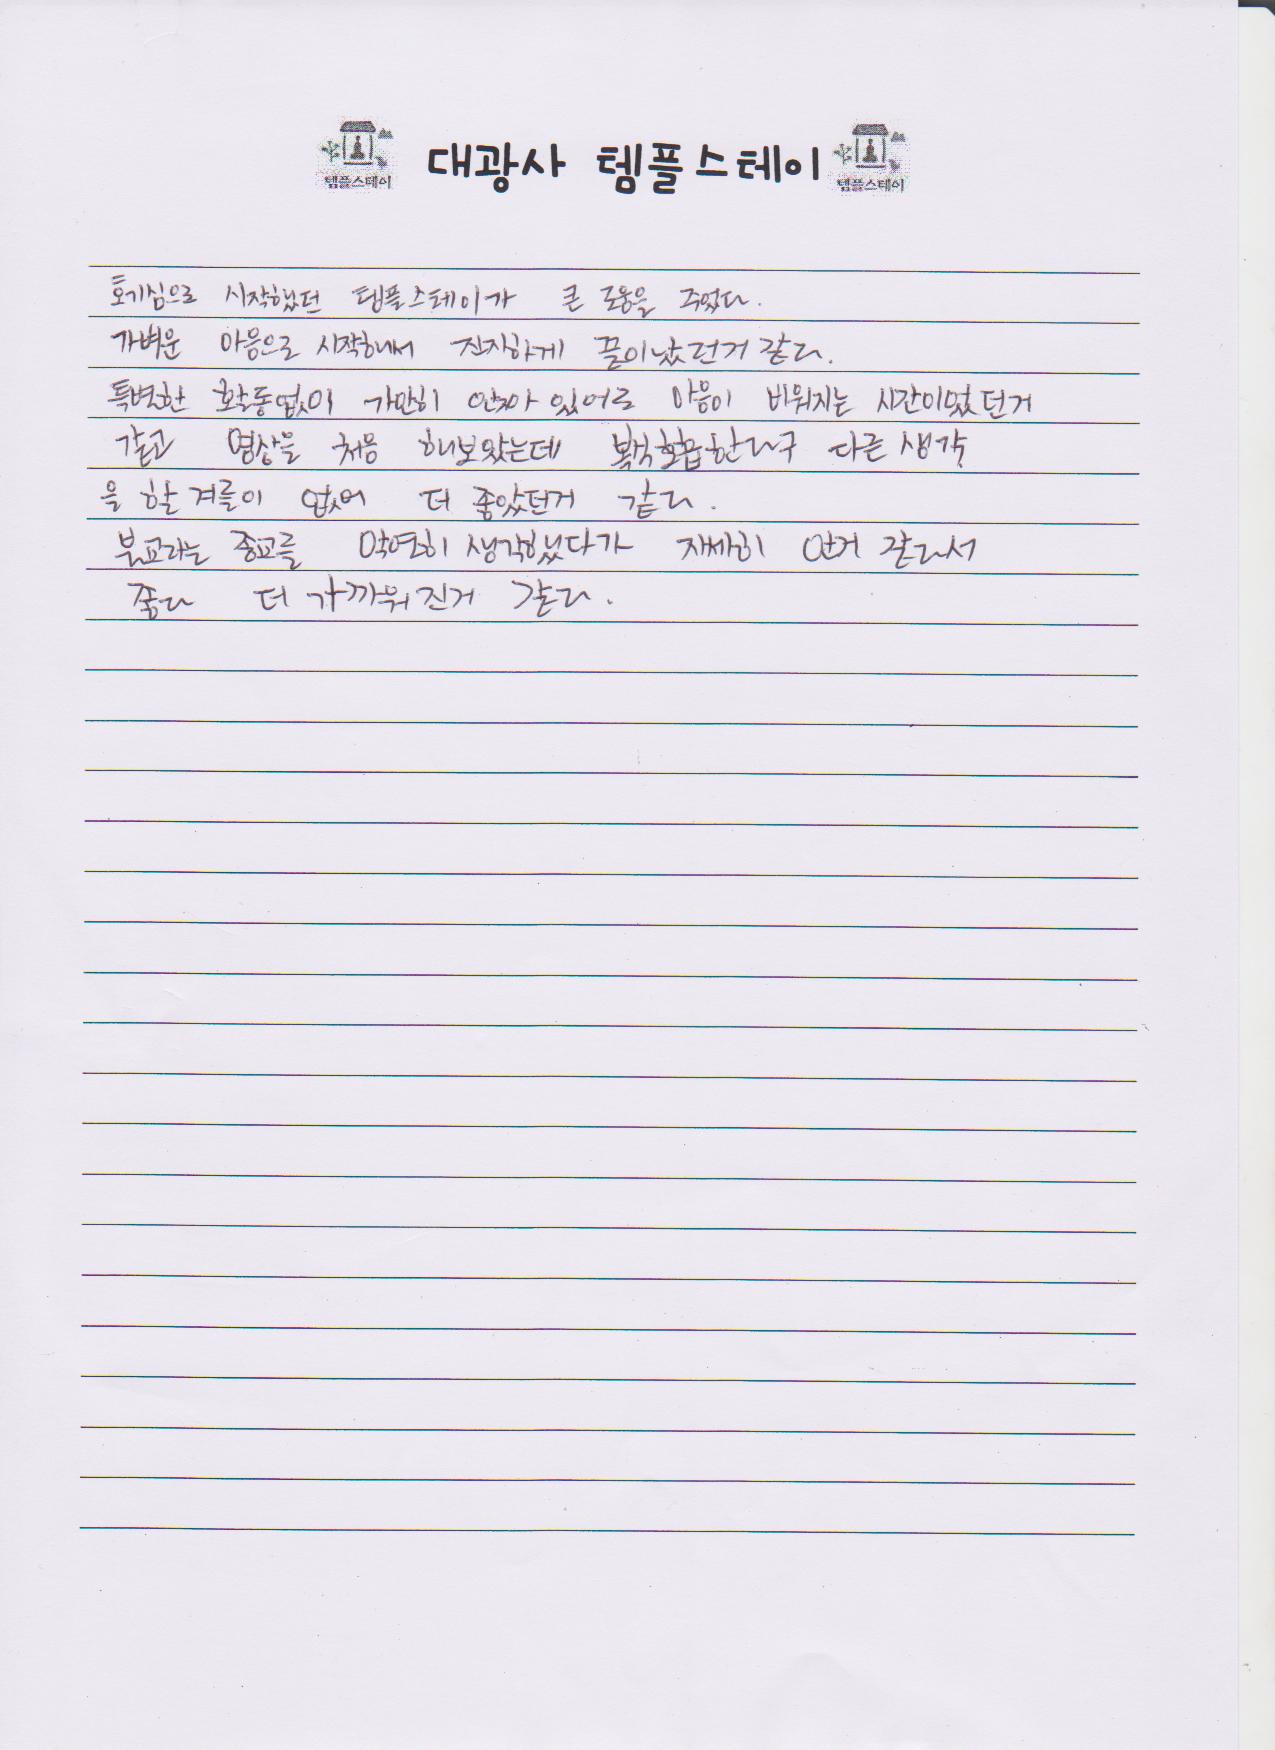 템플스테이 대광사 템플스테이 템플스테이
호기심으로 시작했던 템플스테이가 큰 도움을 주었다.
가벼운 마음으로 시작해서 진지하게 끝이났던거 같다.
특별한 활동없이 가만히 앉아 있어도 마음이 비워지는 시간이었던거
같고 명상을 처음 해보았는데 복식호흡한다구 다른 생각
을 할 겨를이 없어 더 좋았던거 같다.
불교라는 종교를 막연히 생각했다가 자세히 안거 같아서
좋다 더 가까워진거 같다.